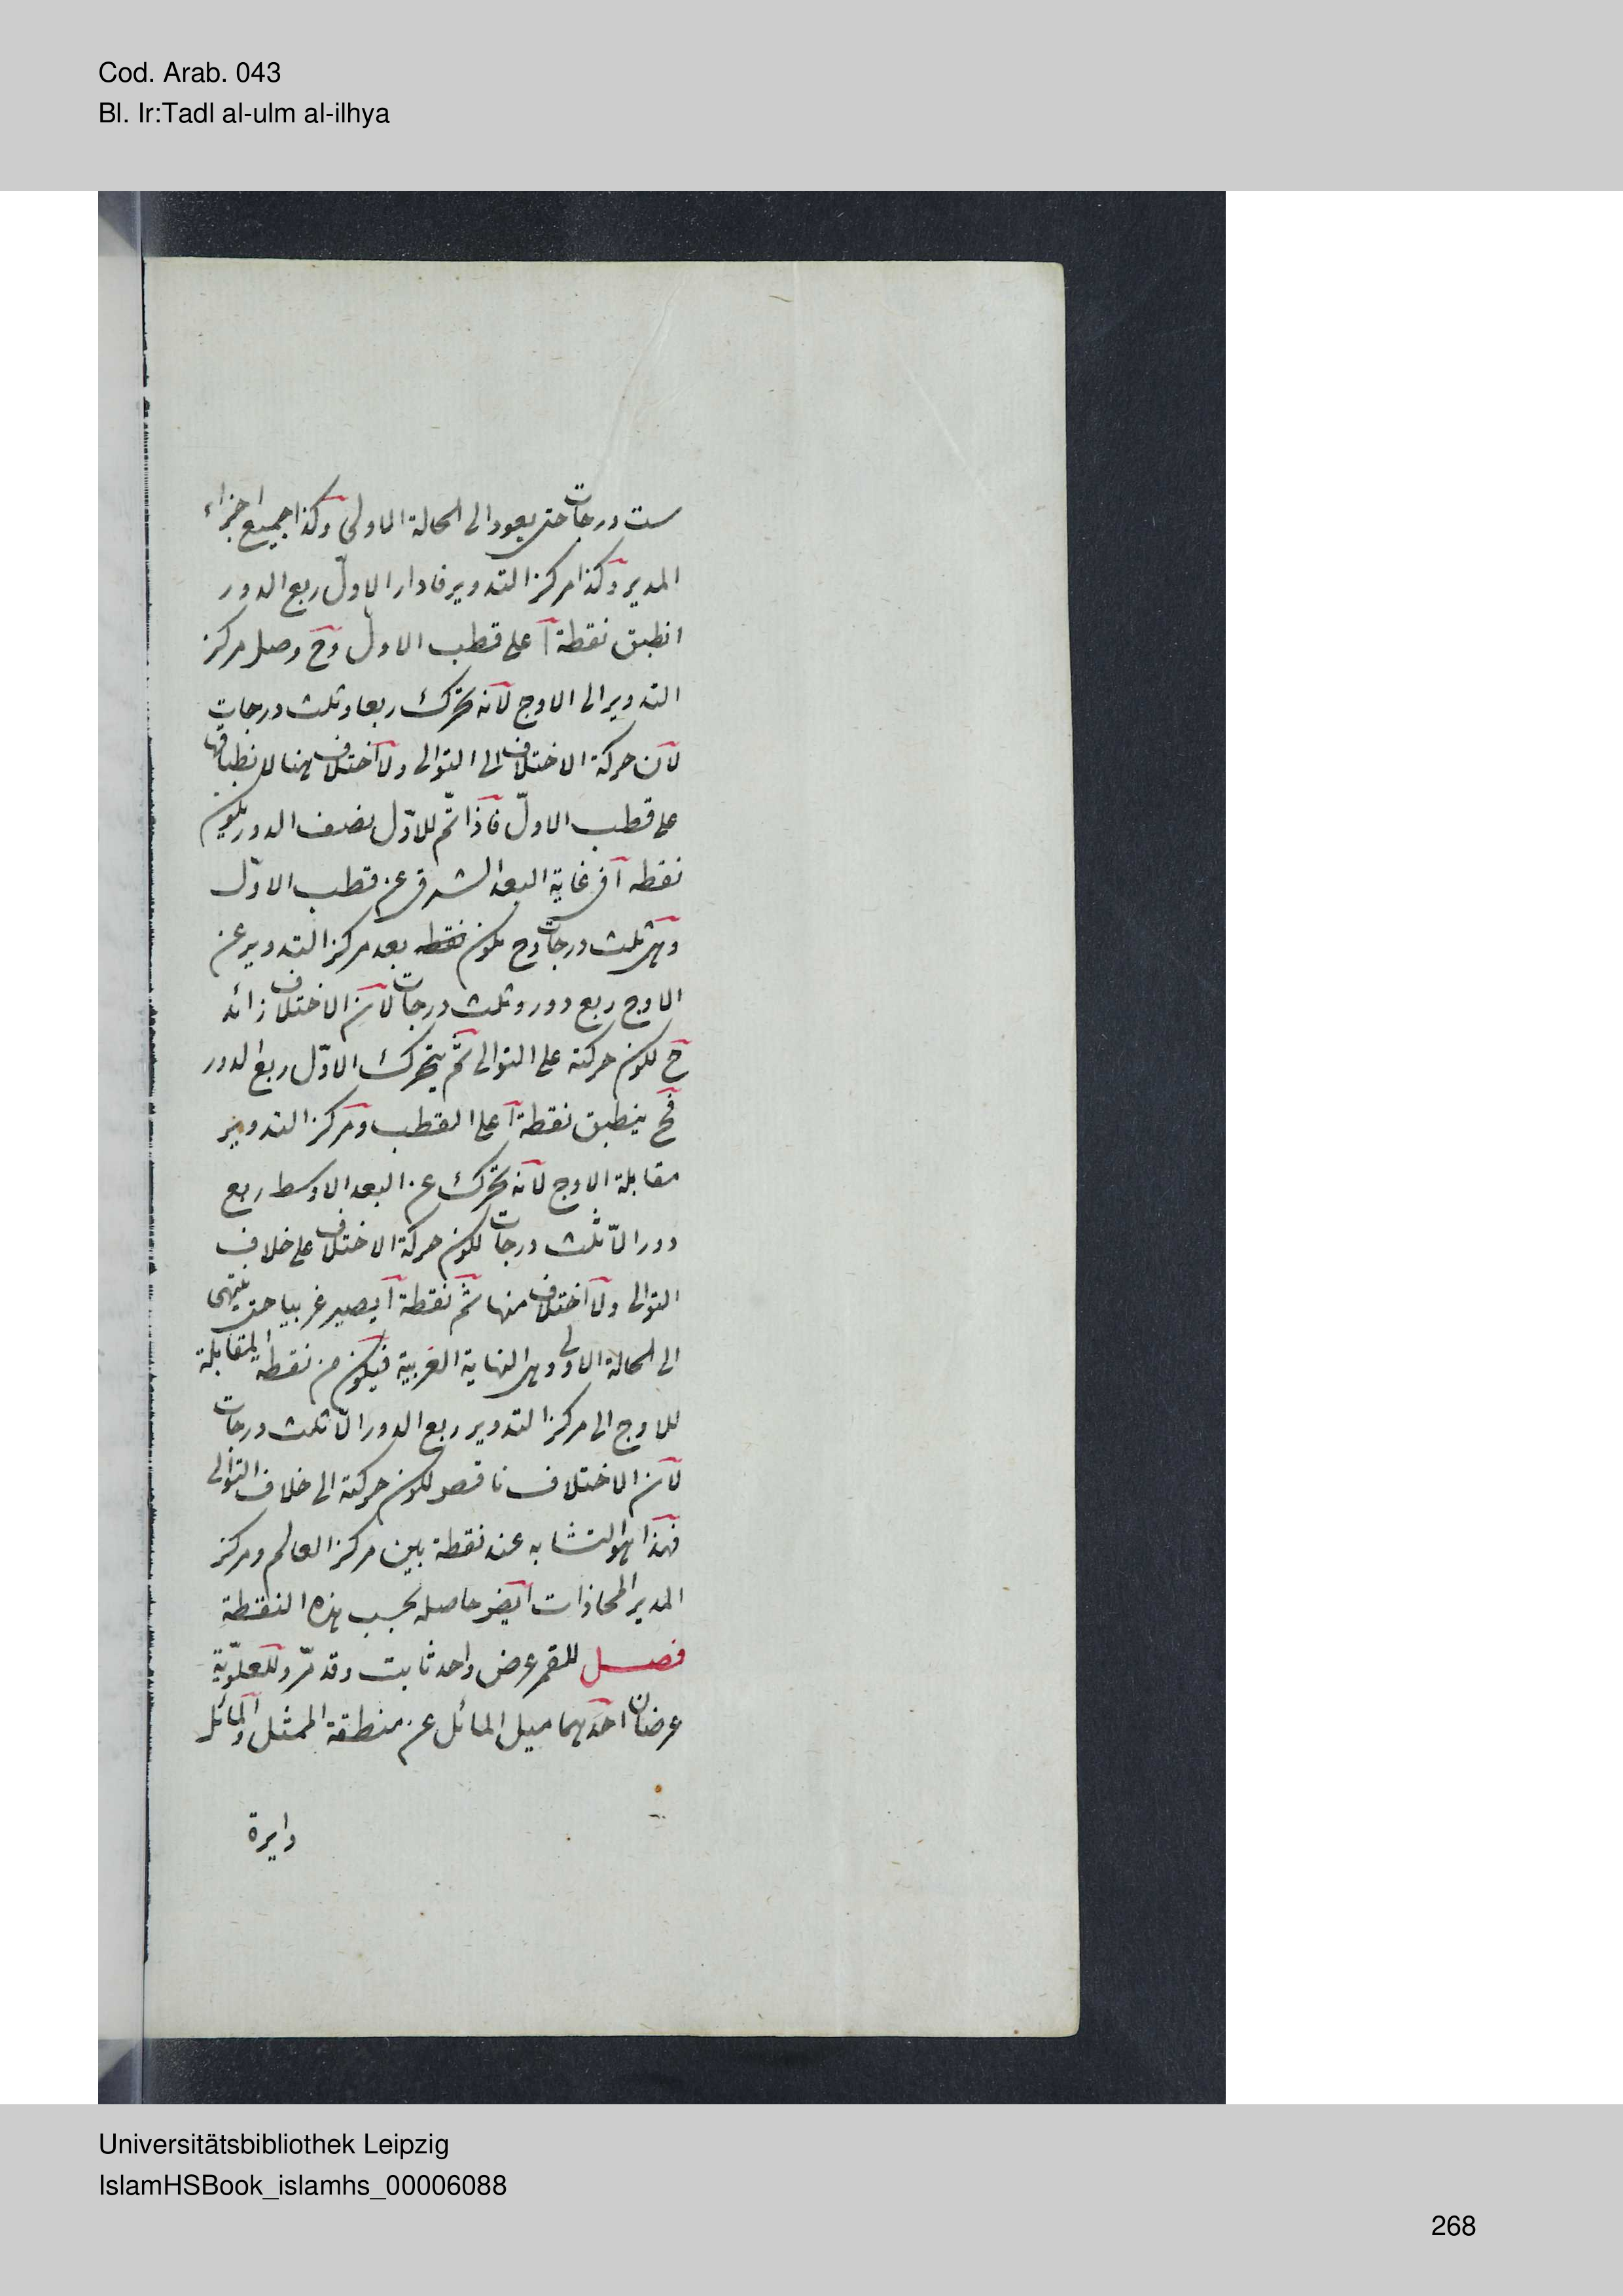 Cod. Arab. 043
Bl. Ir:Tadl al-ulm al-ilhya
ست درجات حتى يعود الى الحالة الاولى وكذا جميع اجزاء
المدير وكذا مركز التدوير فادار الاول ربع الدور
انطبق نقطة آ على قطب الاول وح وصل مركز
التدوير الى الاوج لانه تحرك ربعا وثلث درجات
لان حركة الاختلاف الى التوالى ولا اختلاف هنا لانطباقها
على قطب الاول فاذا تم للاول نصف الدور يكون
نقطه آ فى غاية البعد الشرقى عن قطب الاول
وهى ثلث درجات وح يكون نقطه بعد مركز التدوير عن
الاوج ربع دور وثلث درجات لان الاختلاف زائد
ح لكون حركته على التوالى ثم يتحرك الاول ربع الدور
فح ينطبق نقطة آ على القطب ومركز التدوير
مقابلة الاوج لانه تحرك عن البعد الاوسط ربع
دور الا ثلث درجات لكون حركة الاختلاف على خلاف
التوالى ولا اختلاف منها ثم نقطة آ يصير غربيا حتى ينتهى
الى الحالة الاولى وهى النهاية الغربية فيكون من نقطة المقابلة
للاوج الى مركز التدوير ربع الدور الا ثلث درجات
لان الاختلاف ناقص لكون حركته الى خلاف التوالى
فهذا هو التشابه عند نقطة بين مركز العالم ومركز
المدير المحاذات ايضر حاصله بحسب هذه النقطة
فصل للقمر عرض واحد ثابت وقد مرّ وللعلوّية
عرضان احدهما ميل المائل عن منطقة الممثل والمائل
دايرة
Universitätsbibliothek Leipzig
IslamHSBook_islamhs_00006088
268